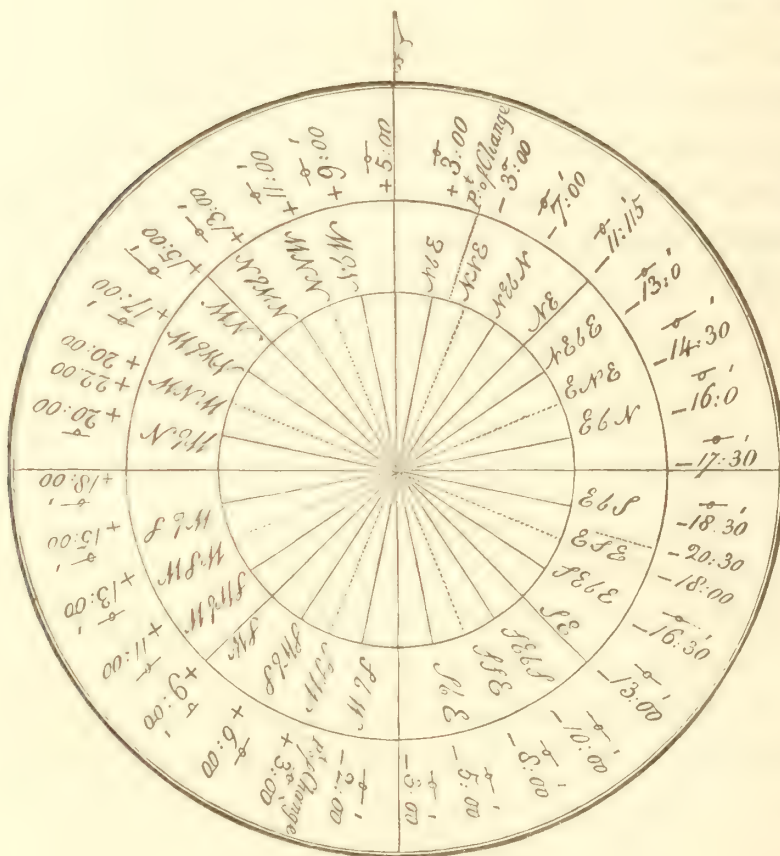 +3:00
P.t of Change
-3:00
-7:00
-11:15
-13:0
-14:30
-16:0
-17:30
-18:30
-20:30
-18:00
-16:30
-13:00
-10:00
-8:00
-5:00
-3:00
-2:00
P.t of Change
+3:00
+6:00
+9:00
+11:00
+13:00
+15:00
+18:00
+20:00
+22:00
+20:00
+17:00
+15:00
+13:00
+11:00
+9:00
+5:00
NbE
NNE
NEbN
NE
NEbE
ENE
EbN
EbS
ESE
SEbE
SE
SEbS
SSE
SbE
SbW
SSW
SWbS
SW
SWbW
WSW
WbS
WbN
WNW
NWbW
NW
NWbN
NNW
NbW